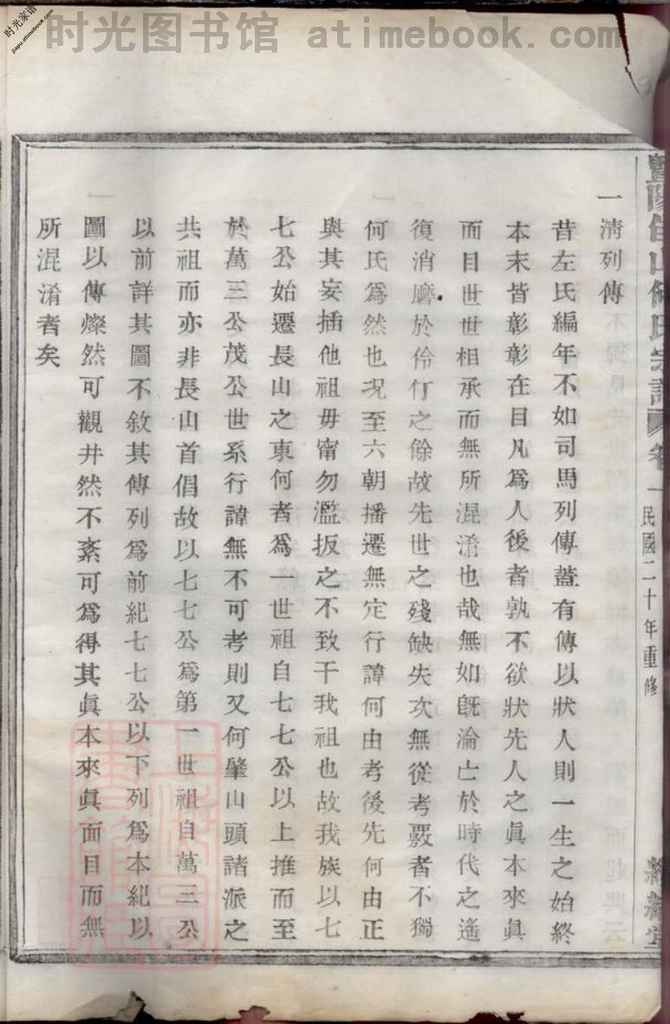 时光图书馆 atimebook.com
时光家谱
一清列傳
昔左氏編年不如司馬列傳蓋有傳以狀人則一生之始終
本末皆彰彰在目凡爲人後者孰不欲狀先人之眞本來眞
面目世世相承而無所混淆也哉無如旣淪亡於時代之遙
復消磨於伶仃之餘故先世之殘缺失次無從考覈者不獨
何氏爲然也况至六朝播遷無定行諱何由考後先何由正
與其妄插他祖毋甯勿濫扳之不致干我祖也故我族以七
七公始遷長山之東何者爲一世祖自七七公以上推而至
於萬三公茂公世系行諱無不可考則又何肇山頭諸派之
共祖而亦非長山首倡故以七七公爲第一世祖自萬三公
以前詳其圖不敘其傳列爲前紀七七公以下列爲本紀以
圖以傳燦然可觀井然不紊可爲得其眞本來眞面目而無
所混淆者矣
山何氏宗譜 卷一 民國二十年重修